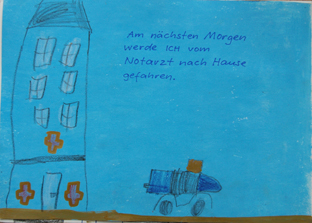 Am nächsten Morgen
werde ICH vom
Notarzt nach Hause
gefahren.